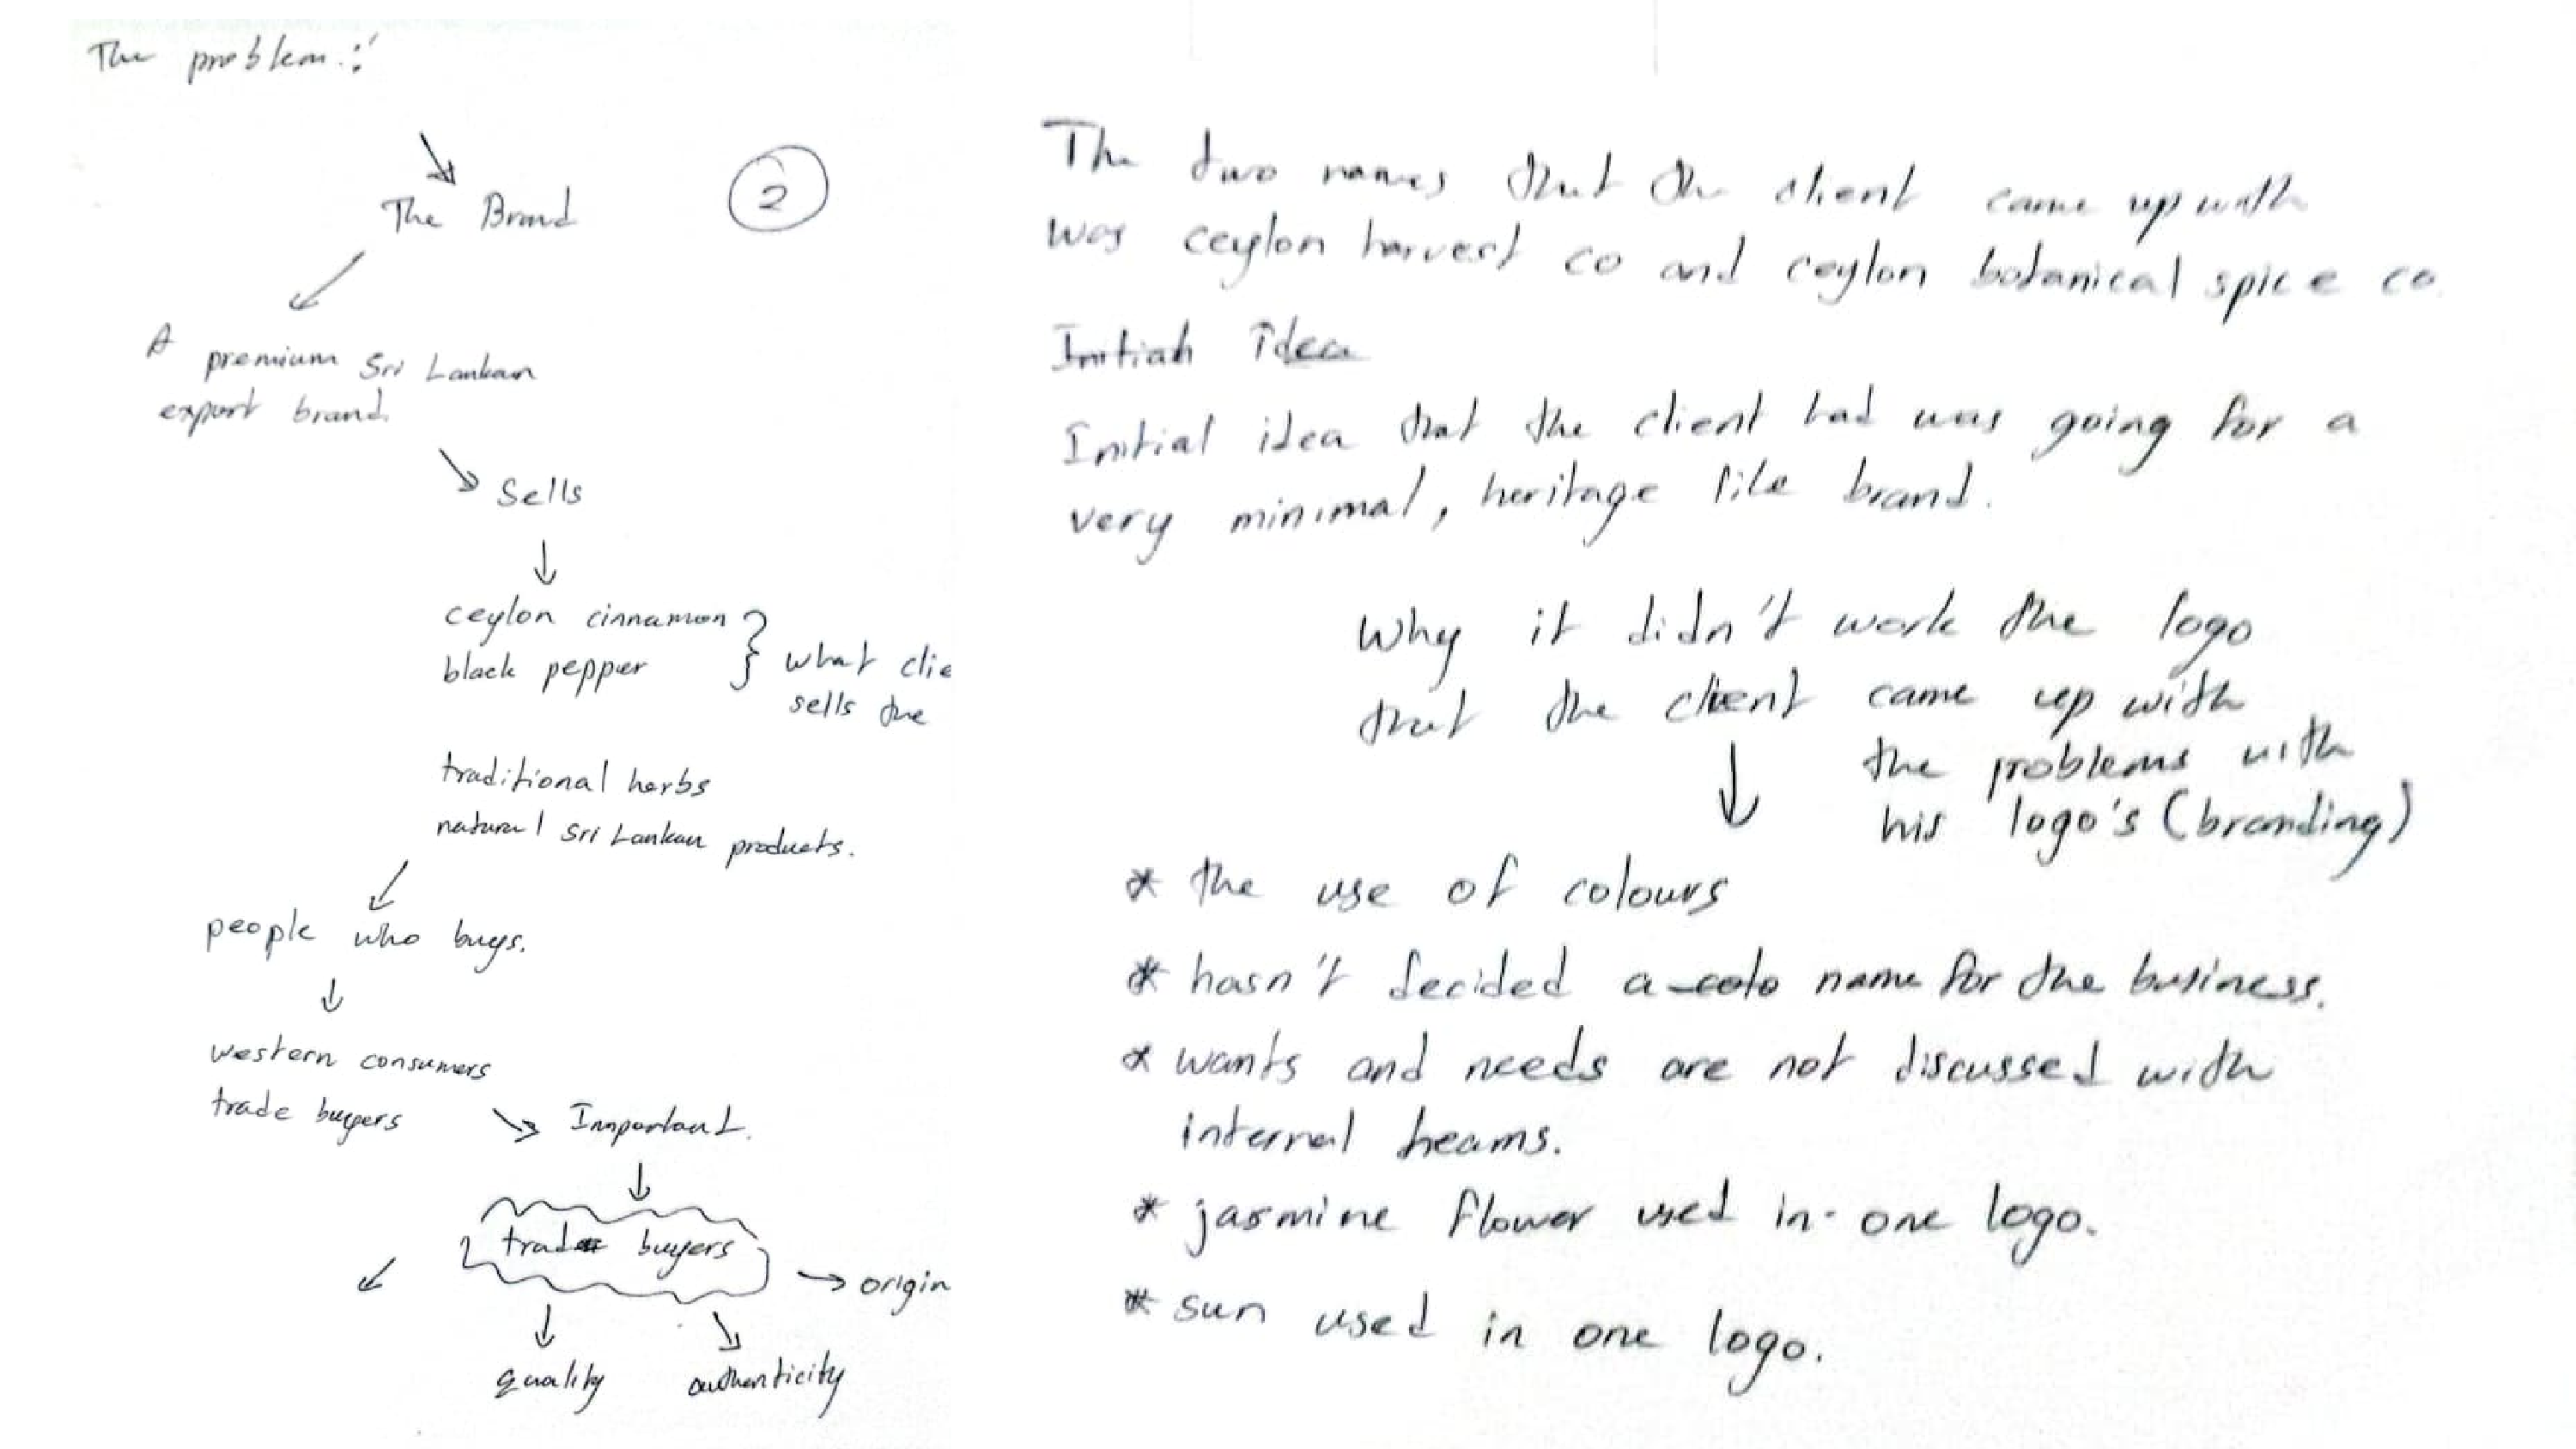 The problem:
The Brand
2
A premium Sri Lankan
export brand.
Sells
ceylon cinnamon
black pepper
what clie
sells the
traditional herbs
natural Sri Lankan products.
people who buys.
western consumers
trade buyers
Important.
trade buyers
origin
quality
authenticity
The two names that the client came up with
was ceylon harvest co and ceylon botanical spice co.
Initial idea
Initial idea that the client had was going for a
very minimal, heritage like brand.
Why it didn't work the logo
that the client came up with
the problems with
his logo's (branding)
* the use of colours
* hasn't decided a colo name for the business.
* wants and needs are not discussed with
internal teams.
* jasmine flower used in one logo.
* sun used in one logo.